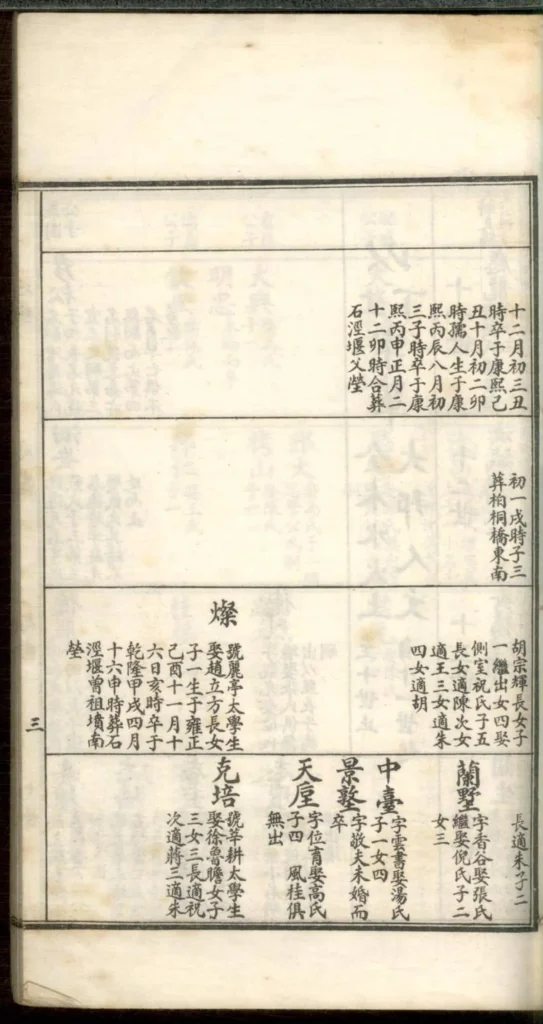 十二月初三丑
時卒于康熙己
丑十月初二卯
時孺人生于康
熙丙辰八月初
三子時卒于康
熙丙申正月二
十二卯時合葬
石涇堰父塋
初一戌時子三
葬柏桐橋東南
胡宗輝長女子
一繼出女四娶
側室祝氏子五
長女適陳次女
適王三女適朱
四女適胡
燦
號麗亭太學生
娶趙立方長女
子一生于雍正
己酉十一月十
六日亥時卒于
乾隆甲戌四月
十六申時葬石
涇堰曾祖墳南
塋
長適朱子二
蘭墅
字香谷娶張氏
繼娶倪氏子二
女三
中臺
字雲書娶湯氏
子一女四
景塾
字敬夫未婚而
卒
天垕
字位育娶高氏
子四 風桂俱
無出
克培
號莘耕太學生
娶徐魯瞻女子
三女三長適祝
次適蔣三適朱
三